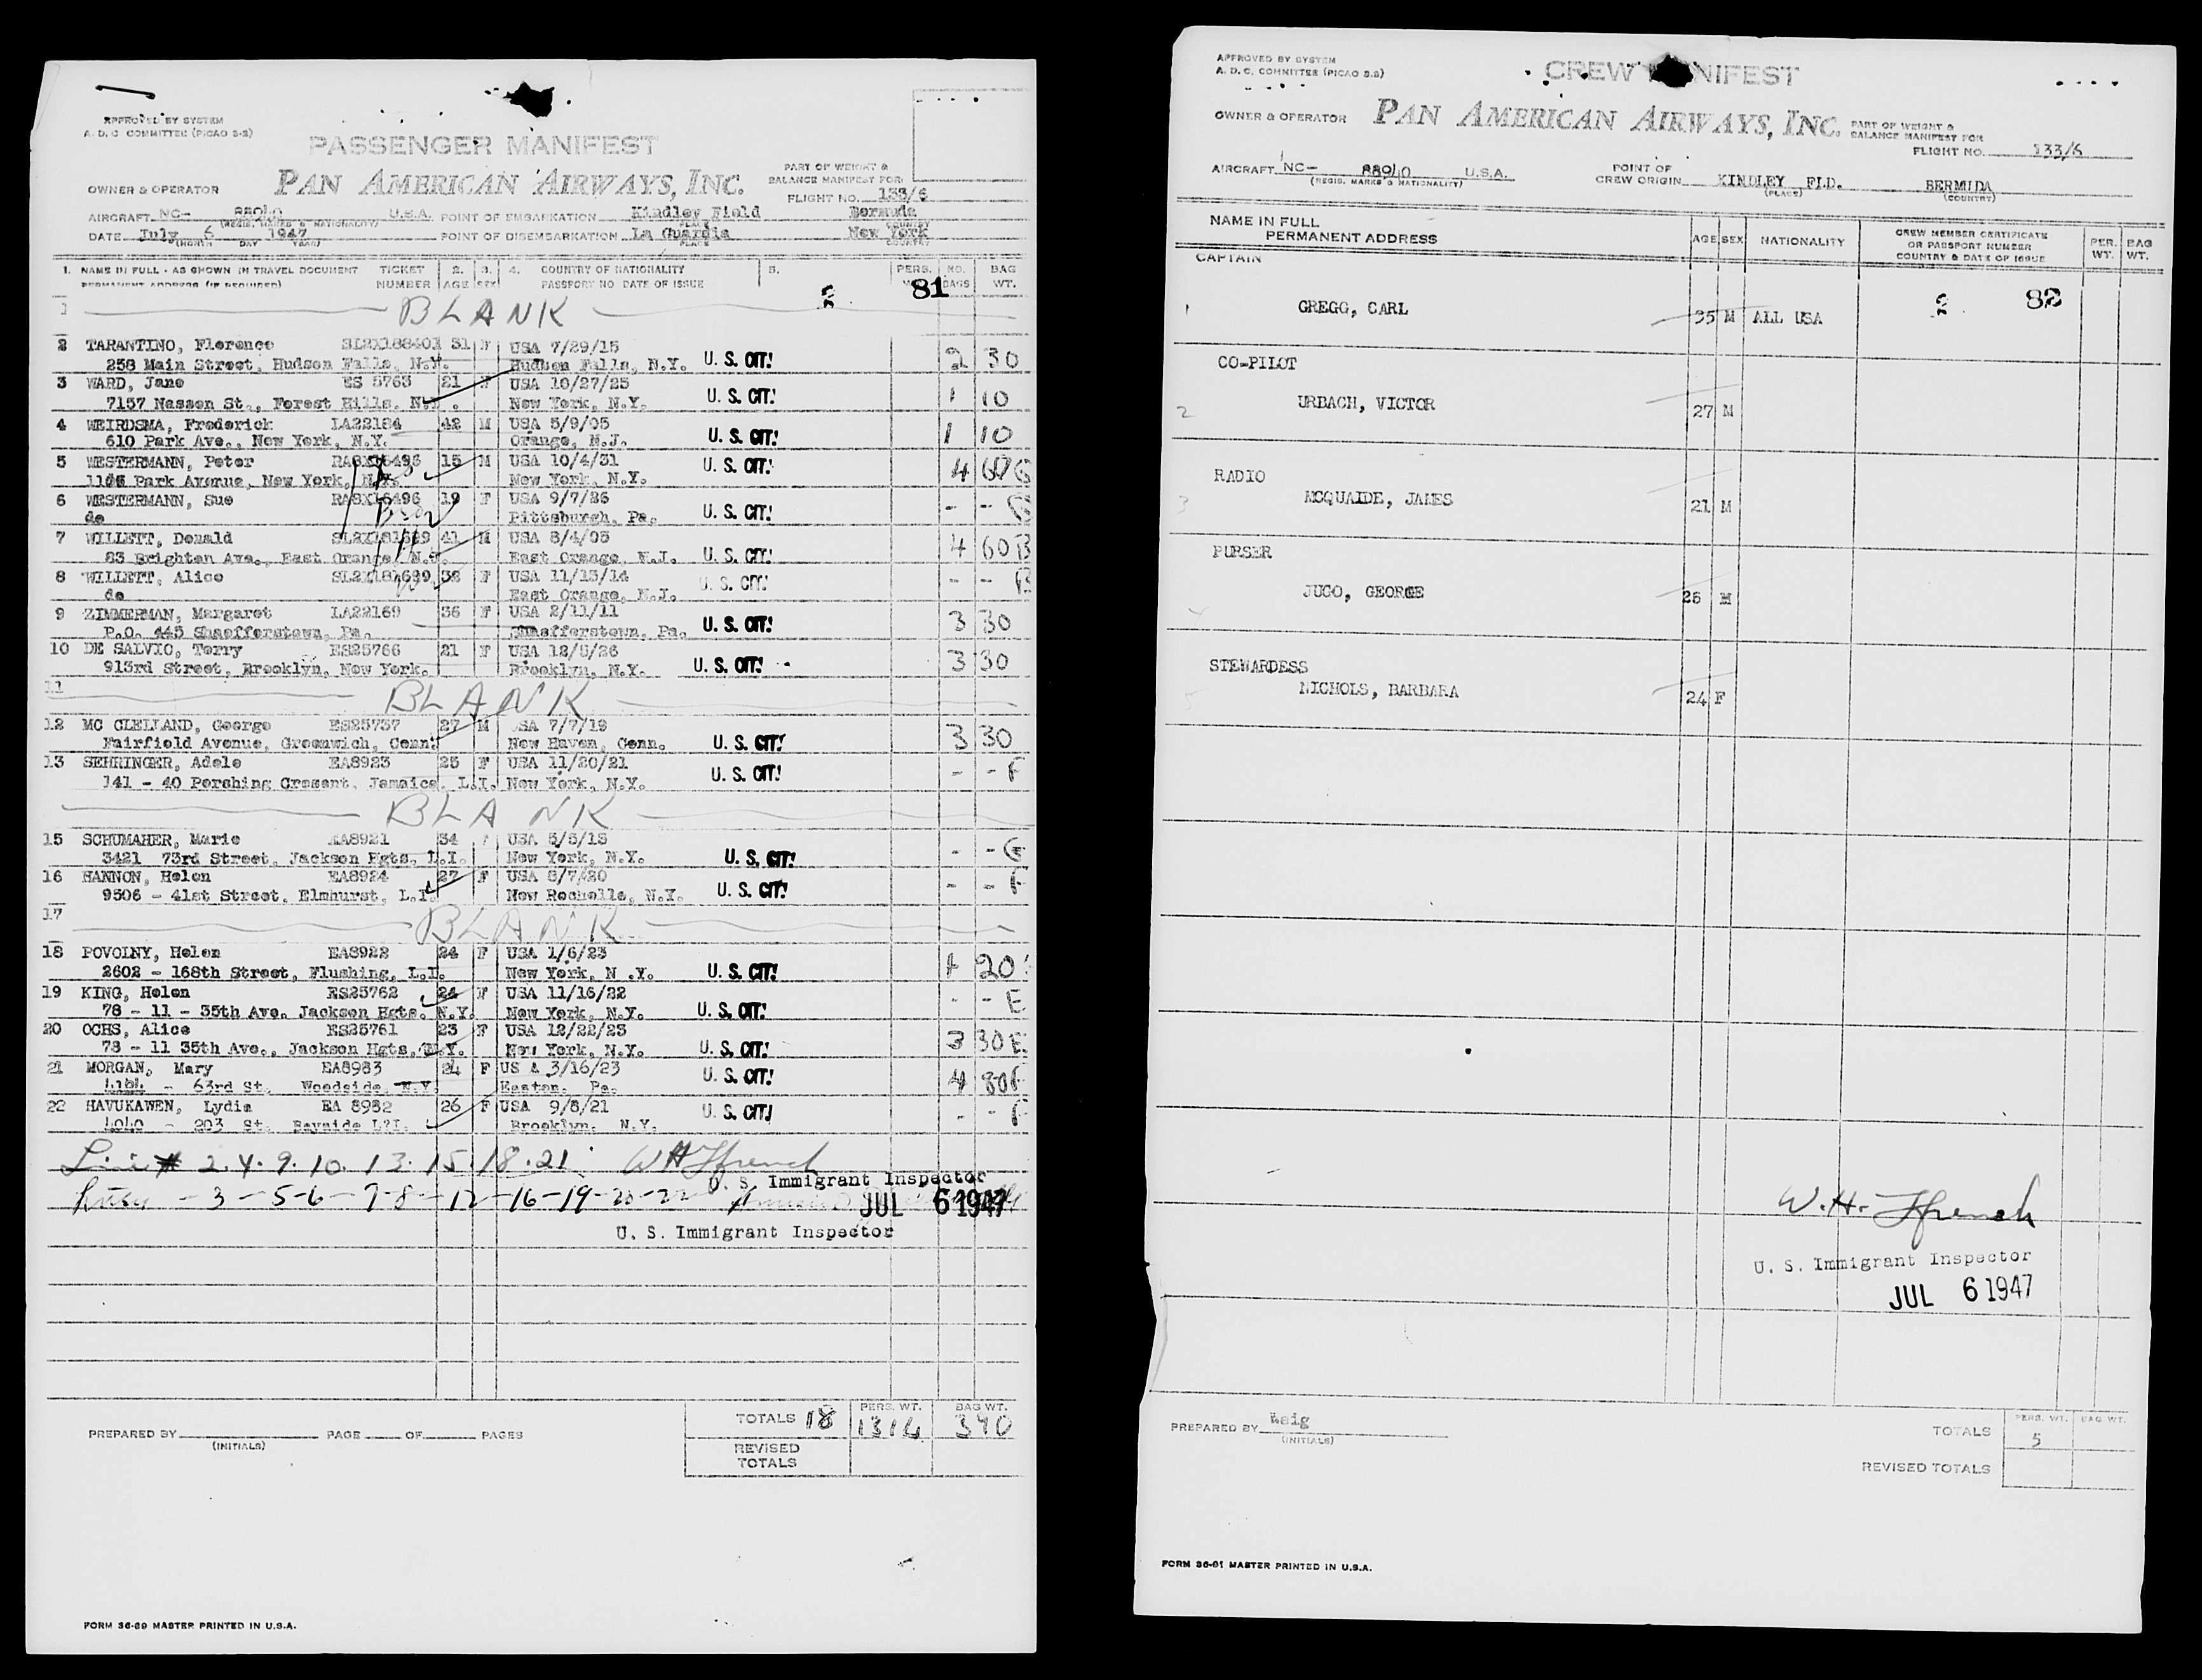 APPROVED BY SYSTEM
A. D. C. COMMITTEE (PICAO 2-2)
PASSENGER MANIFEST
OWNER & OPERATOR PAN AMERICAN AIRWAYS, INC.
PART OF WEIGHT &
BALANCE MANIFEST FOR
FLIGHT NO. 133/6
AIRCRAFT NC- 88040 U.S.A. POINT OF EMBARKATION Kindley Field Bermuda
(REGIS. MARKS & NATIONALITY) PLACE COUNTRY
DATE July 6 1947 POINT OF DISEMBARKATION La Guardia New York
(MONTH DAY YEAR) PLACE COUNTRY
1. NAME IN FULL - AS SHOWN IN TRAVEL DOCUMENT TICKET 2. 3. 4. COUNTRY OF NATIONALITY 5. PERS. NO. BAG
PERMANENT ADDRESS (IF REQUIRED) NUMBER AGE SEX PASSPORT NO DATE OF ISSUE BAGS WT.
81
1 BLANK
2 TARANTINO, Florence 31 F USA 7/29/15
258 Main Street, Hudson Falls, N.Y. Hudson Falls, N.Y. U. S. CIT! 2 30
3 WARD, Jane ES 5763 21 F USA 10/27/25
7157 Nassen St., Forest Hills, N.Y. New York, N.Y. U. S. CIT! 1 10
4 WEIRDSMA, Frederick LA22184 42 M USA 5/9/05
610 Park Ave., New York, N.Y. Orange, N.J. U. S. CIT! 1 10
5 WESTERMANN, Peter 15 M USA 10/4/31 U. S. CIT!
Park Avenue, New York, N.Y. New York, N.Y. 4
6 WESTERMANN, Sue RA8X16496 19 F USA 9/7/26
do Pittsburgh, Pa. U. S. CIT! - -
7 WILLETT, Donald 41 M USA 8/4/05
83 Brighton Ave., East Orange, N.J. East Orange, N.J. U. S. CIT! 4 60 B
8 WILLETT, Alice 32 F USA 11/13/14 U. S. CIT! - - B
do East Orange, N.J.
9 ZIMMERMAN, Margaret LA22169 36 F USA 2/11/11
P.O. 445 Shaefferstown, Pa. Shaefferstown, Pa. U. S. CIT! 3 30
10 DE SALVIO, Terry ES25766 21 F USA 12/5/26
913rd Street, Brooklyn, New York. Brooklyn, N.Y. U. S. CIT! 3 30
11 BLANK
12 MC CLELLAND, George ES25757 27 M USA 7/7/19
Fairfield Avenue, Greenwich, Conn. New Haven, Conn. U. S. CIT! 3 30
13 SEHRINGER, Adele EA8923 25 F USA 11/20/21
141 - 40 Pershing Cresant, Jamaica, L.I. New York, N.Y. U. S. CIT! - - F
BLANK
15 SCHUMAHER, Marie EA8921 34 F USA 5/5/13
3421 73rd Street, Jackson Hgts. L.I. New York, N.Y. U. S. CIT! - - G
16 HANNON, Helen EA8924 27 F USA 8/7/20
9506 - 41st Street, Elmhurst, L.I. New Rochelle, N.Y. U. S. CIT! - - F
17 BLANK
18 POVOLNY, Helen EA8922 24 F USA 1/6/23
2602 - 168th Street, Flushing, L.I. New York, N.Y. U. S. CIT! 1 20
19 KING, Helen ES25762 24 F USA 11/16/22
78 - 11 - 35th Ave. Jackson Hgts. N.Y. New York, N.Y. U. S. CIT! - - E
20 OCHS, Alice ES25761 23 F USA 12/22/23
78 - 11 35th Ave., Jackson Hgts, N.Y. New York, N.Y. U. S. CIT! 3 30 E
21 MORGAN, Mary EA8983 24 F USA 3/16/23
- 63rd St. Woodside, N.Y. Easton, Pa. U. S. CIT! 4
22 HAVUKAWEN, Lydia EA 8982 26 F USA 9/8/21
4040 - 203 St. Bayside L.I. Brooklyn, N.Y. U. S. CIT! - - F
Line # 2. 4. 9. 10. 13. 15. 18. 21 W H Ffrench
U. S. Immigrant Inspector
- 3 - 5-6 - 7-8 - 12 - 16 - 19 - 20 - 22
JUL 6 1947
U. S. Immigrant Inspector
TOTALS 18 PERS. WT. 1314 BAG WT. 390
REVISED
TOTALS
PREPARED BY (INITIALS) PAGE OF PAGES
FORM 36-69 MASTER PRINTED IN U.S.A.
APPROVED BY SYSTEM
A. D. C. COMMITTEE (PICAO 2-2)
CREW MANIFEST
OWNER & OPERATOR PAN AMERICAN AIRWAYS, INC.
PART OF WEIGHT &
BALANCE MANIFEST FOR
FLIGHT NO. 133/6
AIRCRAFT NC- 88040 U.S.A. POINT OF CREW ORIGIN KINDLEY FLD. BERMUDA
(REGIS. MARKS & NATIONALITY) (PLACE) (COUNTRY)
NAME IN FULL
PERMANENT ADDRESS AGE SEX NATIONALITY CREW MEMBER CERTIFICATE OR PASSPORT NUMBER COUNTRY & DATE OF ISSUE PER. WT. BAG WT.
CAPTAIN
82
1 GREGG, CARL 35 M ALL USA
CO-PILOT
2 URBACH, VICTOR 27 M
RADIO
3 MCQUAIDE, JAMES 21 M
PURSER
JUGO, GEORGE 26 M
STEWARDESS
5 NICHOLS, BARBARA 24 F
W. H. Ffrench
U. S. Immigrant Inspector
JUL 6 1947
PREPARED BY Haig
(INITIALS)
PERS. WT. BAG WT.
TOTALS 5
REVISED TOTALS
FORM 36-91 MASTER PRINTED IN U.S.A.